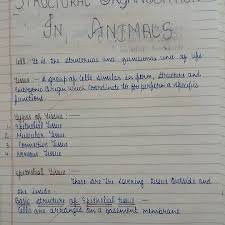 STRUCTURAL ORGANISATION
IN ANIMALS
Cell :- It is the structural and functional unit of life
Tissue :- A group of cells similar in form, structure and
Embryonic Origin which coordinate to the perform a specific
functions.
Types of Tissue :-
1. Epithelial Tissue
2. Muscular Tissue
3. Connective Tissue
4. Nervous Tissue
Epithelial Tissue :-
These are the covering Tissue outside and
the inside.
Basic structure of Epithelial Tissue :-
Cells are arranged on a basement membrane